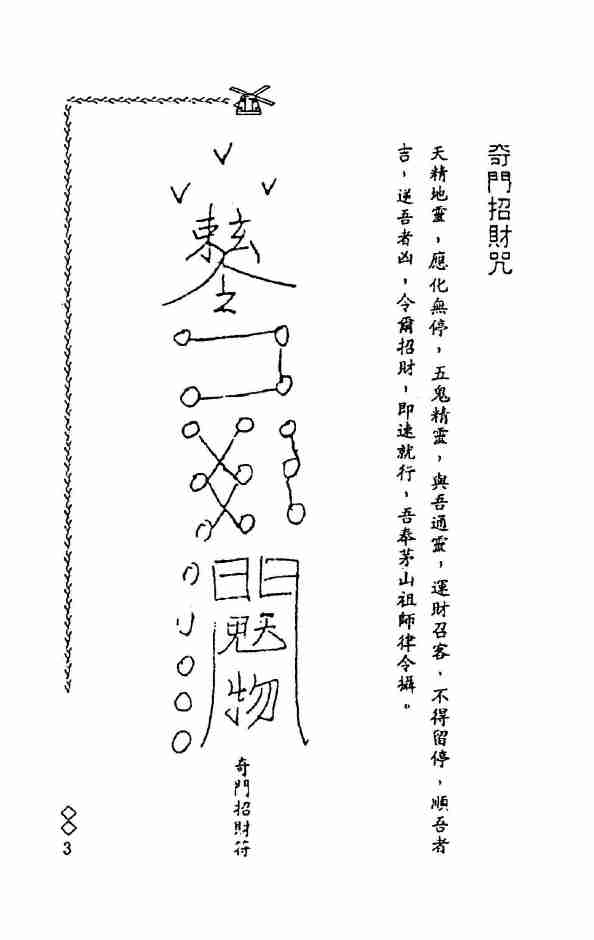 奇門招財咒
天精地靈，應化無停，五鬼精靈，與吾通靈，運財召客、不得留停，順吾者
吉，逆吾者凶，令爾招財，即速就行，吾奉茅山祖師律令攝。
奇門招財符
物
3